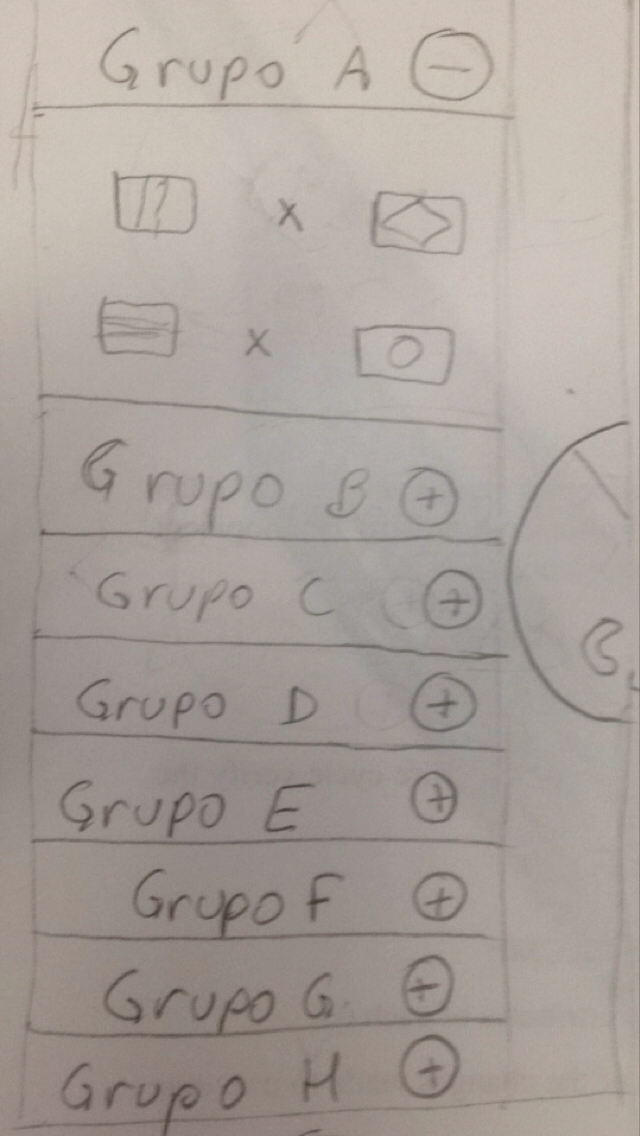 Grupo A
x
x
Grupo B
Grupo C
Grupo D
Grupo E
Grupo F
Grupo G
Grupo H